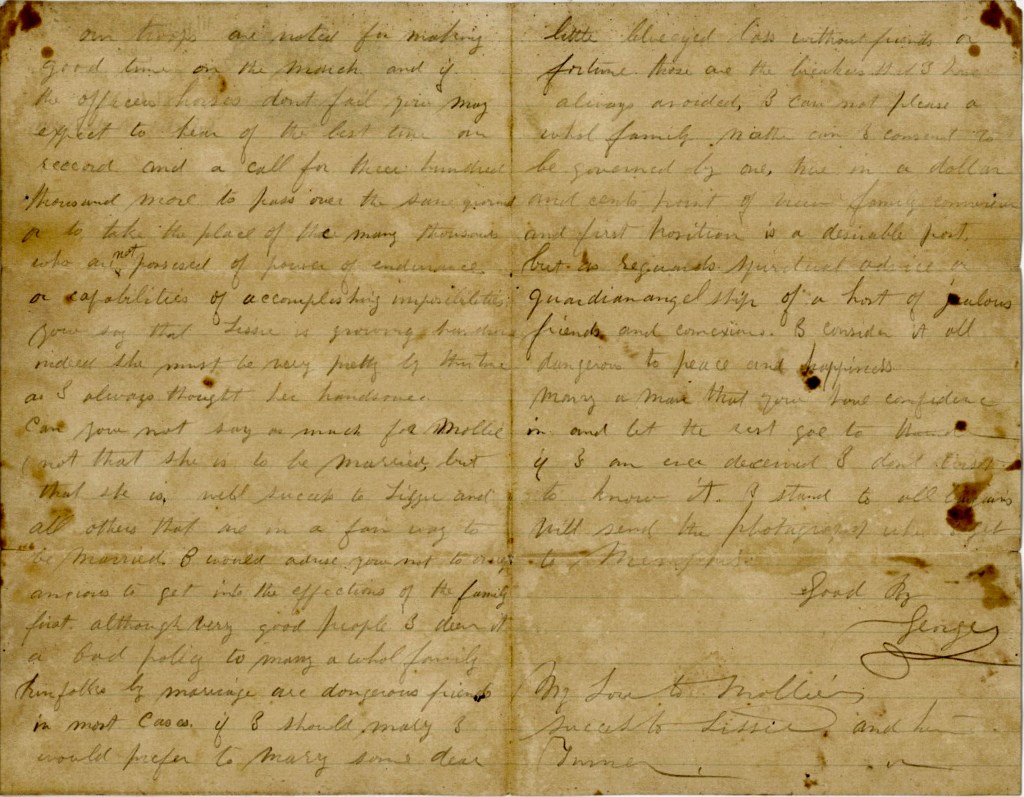 our troops are noted for making
good time on the march and if
the officers horses dont fail you may
expect to hear of the best time on
reccord and a call for three hundred
thousand more to pass over the same ground
or to take the place of the many thousands
who are not possesed of power of endurance
or capabilities of accomplishing imposibilities
you say that Lissie is growing handsom
indeed she must be very pretty by this time
as I always thought her handsome
Can you not say as much for Mollie
not that she is to be married, but
that she is, well success to Lizzie and
all others that are in a fair way to
be married. I would advise you not to be
anxious to get into the effections of the family
first. although very good people I deem it
a bad policy to marry a whol family
kinfolks by marriage are dangerous friends
in most cases. if I should mary I
would prefer to marry some dear
little blueeyed lass without friends or
fortune. those are the breakers that I have
always avoided, I can not please a
whol family niather can I consent to
be governed by one, true in a dollar
and cents point of view family
and first position is a desirable port,
but as reguards spiritual advice or
guardianangel ship of a host of jealous
friends and conexions. I consider it all
dangerous to peace and happiness
marry a man that you have confidence
in and let the rest goe to
if I am ever deceived I dont
to know it. I stand to all
will send the photograph when I get
to Memphis
Good By
George
My Love to Mollie
success to Lissie and
Turner